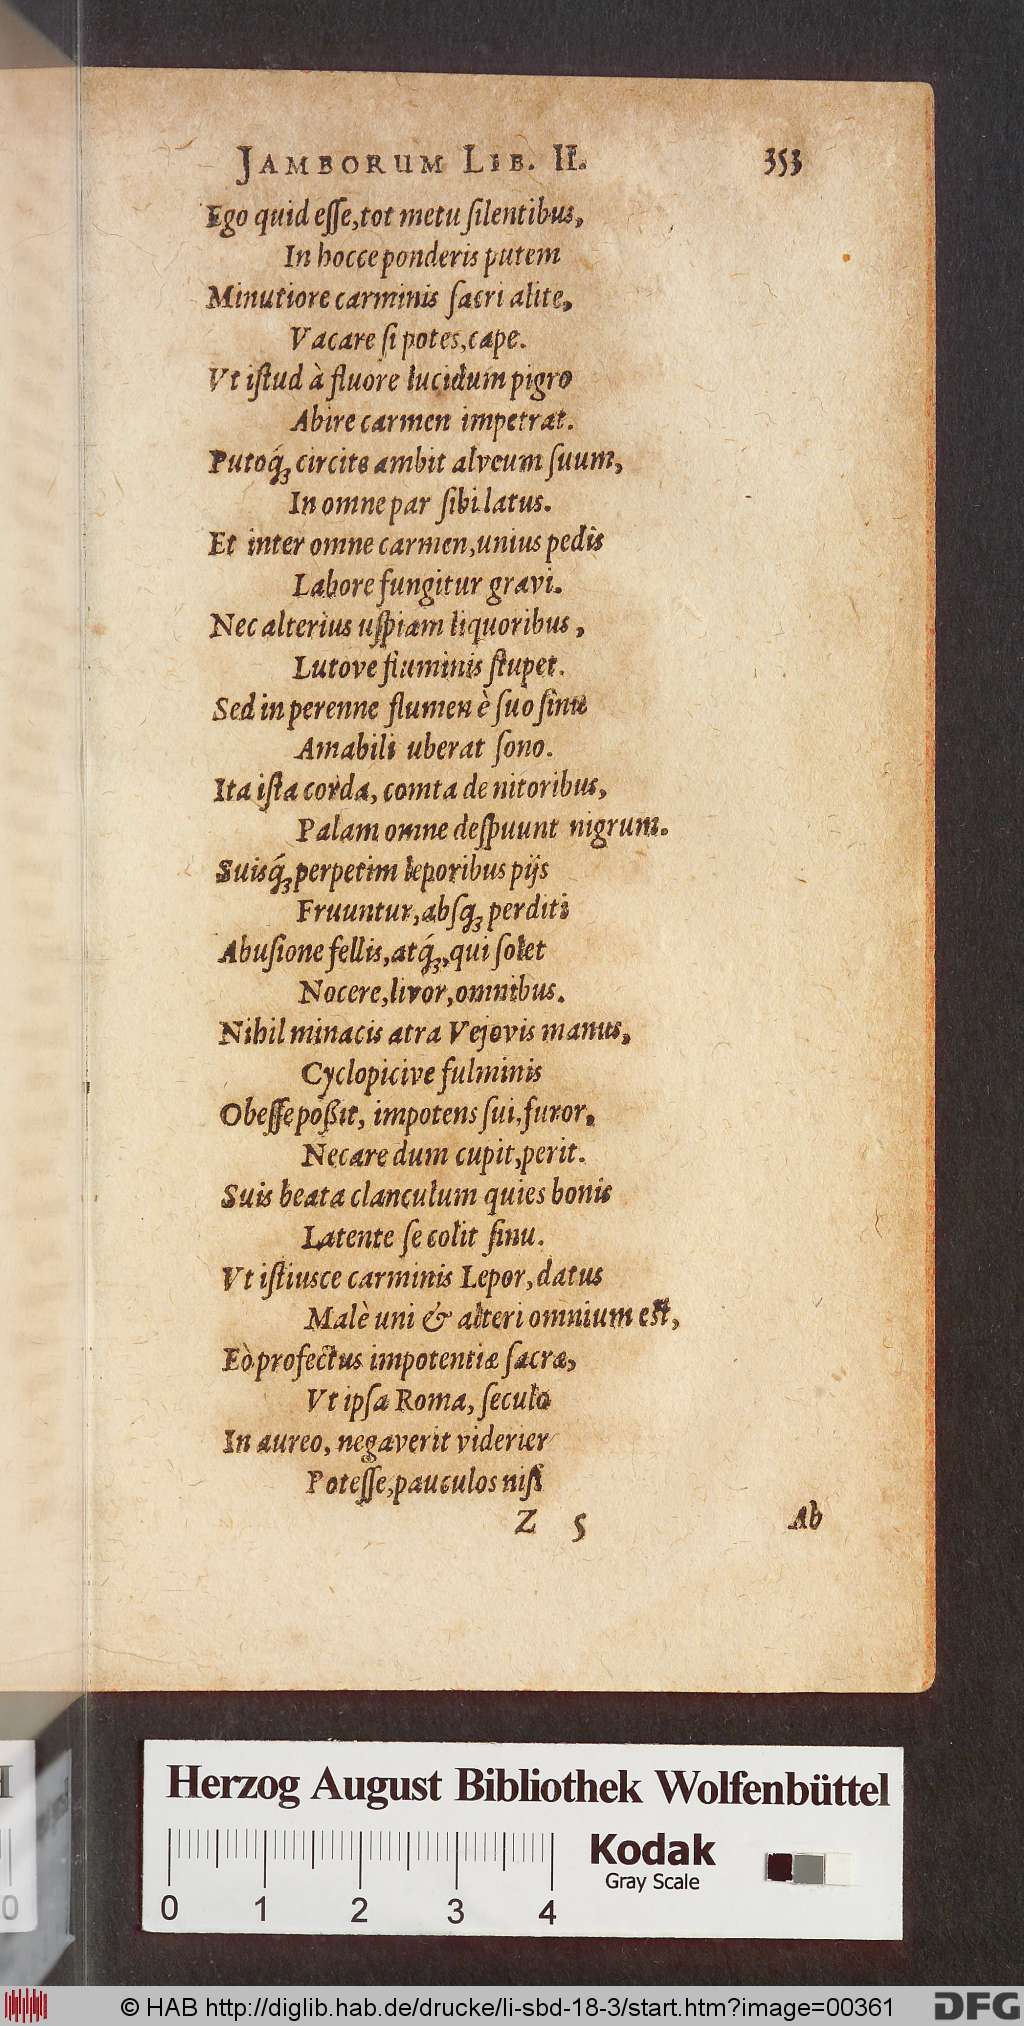 JAMBORUM LIB. II. 353
Ego quid eſſe, tot metu ſilentibus,
In hocce ponderis putem
Minutiore carminis ſacri alite,
Vacare ſi potes, cape.
Vt iſtud à fluore lucidum pigro
Abire carmen impetrat.
Putoq́ꝫ circite ambit alveum ſuum,
In omne par ſibi latus.
Et inter omne carmen, unius pedis
Labore fungitur gravi.
Nec alterius uſpiam liquoribus,
Lutove fluminis ſtupet.
Sed in perenne flumen è ſuo ſinu
Amabili uberat ſono.
Ita iſta corda, comta de nitoribus,
Palam omne deſpuunt nigrum.
Suisq́ꝫ perpetim leporibus pijs
Fruuntur, absqꝫ perditi
Abuſione fellis, atq́ꝫ, qui ſolet
Nocere, livor, omnibus.
Nihil minacis atra Vejovis manus,
Cyclopicive fulminis
Obeſſe poßit, impotens ſui, furor,
Necare dum cupit, perit.
Suis beata clanculum quies bonis
Latente ſe colit ſinu.
Vt iſtiusce carminis Lepor, datus
Malè uni & alteri omnium eſt,
Eò profectus impotentiæ ſacræ,
Vt ipſa Roma, ſeculo
In aureo, negaverit viderier
Poteſſe, pauculos niſi
Z 5 Ab
Herzog August Bibliothek Wolfenbüttel
Kodak
Gray Scale
0 1 2 3 4
© HAB http://diglib.hab.de/drucke/li-sbd-18-3/start.htm?image=00361 DFG